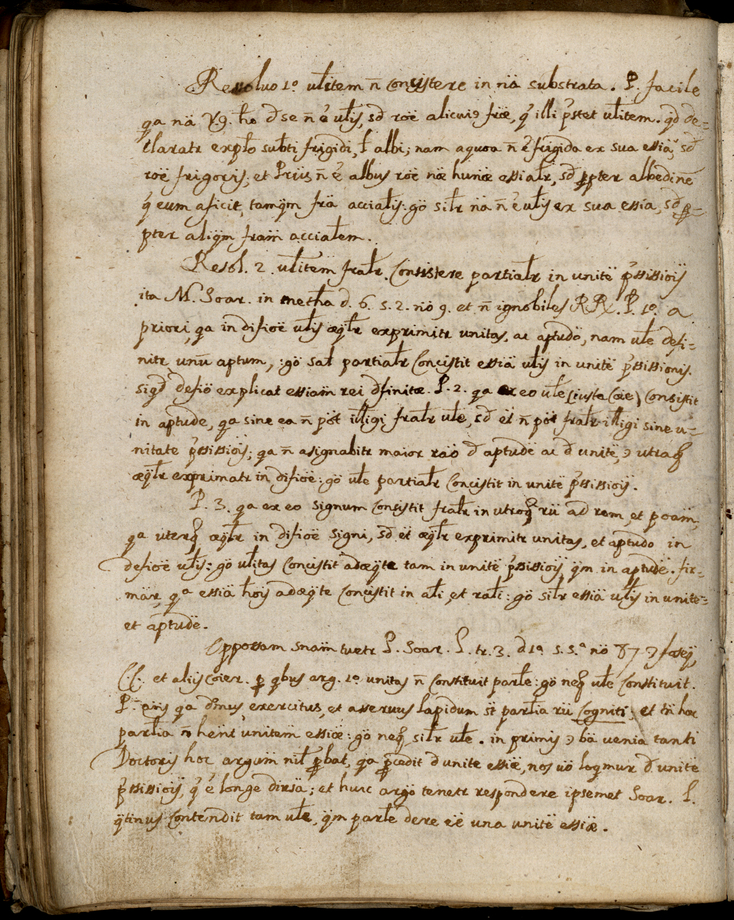 Resoluo 1º ulitem n̄ consistere in nā substrata. P. facile
qa nā vg. hõ d se n̄ ē ulis, sd roē alicuiꝯ frœ, q̃ illi p̃stet ulitem. qd de=
claratr explo subti frigidi, t̄ albi; nam aquoa n̄ ē frigida ex sua essiā, sd
roē frigoris; et n̄ ē albus roē næ humœ essialr, sd ꝓpter albedinē
q̃ eum aficit, tamqm frā accialis: gö silr nā n̄ ē ulis ex sua essia, sd ꝓ=
pter aliqm fram accialem.
Resol. 2. ulitem fralr. Consistere partialr in unitē p̃cissiōis
ita M. Soar. in metha d. 6. s. 2. nö 9. et n̄ ignobiles RR. P. 1º. a
priori, qa in difiōē ulis œqlr exprimitr unitas, ac aptudo, nam ule defi-
nitr unū aptum, : gö sal partialr Concistit essiā ulis in unitē p̃cissionis.
siqd defiö explicat essiam rei dfinitœ. P. 2. qa ex eo ule (iuxta Cōē) consistit
in aptude, qa sine ea n̄ pöt illigi fralr ule, sd et n̄ pöt fralr illigi sine u-
nitate p̃cissiōis; qa n̄ asignabitr maior raö d aptude ac d unitē, ꝯ utraq
œqlr exprimatr in difiōē: gö ule partialr Concistit in unitē p̃cissiōis.
P. 3. qa ex eo signum Consistit fralr in utroq̃ rū ad rem, et pöam,
qa uterq̃ œqlr in difiōē signi, sd et œqlr exprimitr unitas, et aptudo in
defiōē ulis: gö ulitas Concistit adœqte tam in unitē p̃cissiōis, qm in aptude. fir-
matr, qa essiā hois adœqte Concistit in ali, et rali: gö silr essiā ulis in unite=
et aptude.
Oppostam snam tuetr P. Soar. P. tr. 3. d 1ª s. 5.ª nö 87 ꝯ
CC. et alijs Coier. ꝓ qbus arg. 1º unitas n̄ Constituit parle: gö neq̃ ule Constituit.
P. añs qa exercitus, et aseruus lapidum st̄ partia rū Cogniti, et tn̄ hœc
partia n̄ hent unitem essiœ: gö neq̃ silr ule. in primis ꝯ bā uenia tanti
Doctoris hoc argum nil ꝓbat, qa ꝓcedit d unite essiœ, nos uö loqmur d unite
p̃cissiōis, q̃ ē longe dirsa; et huic argö tenetr respondere ipsemet Soar. P.
qtinus Contendit tam ule, qm parle dere eē una unitē essiœ.